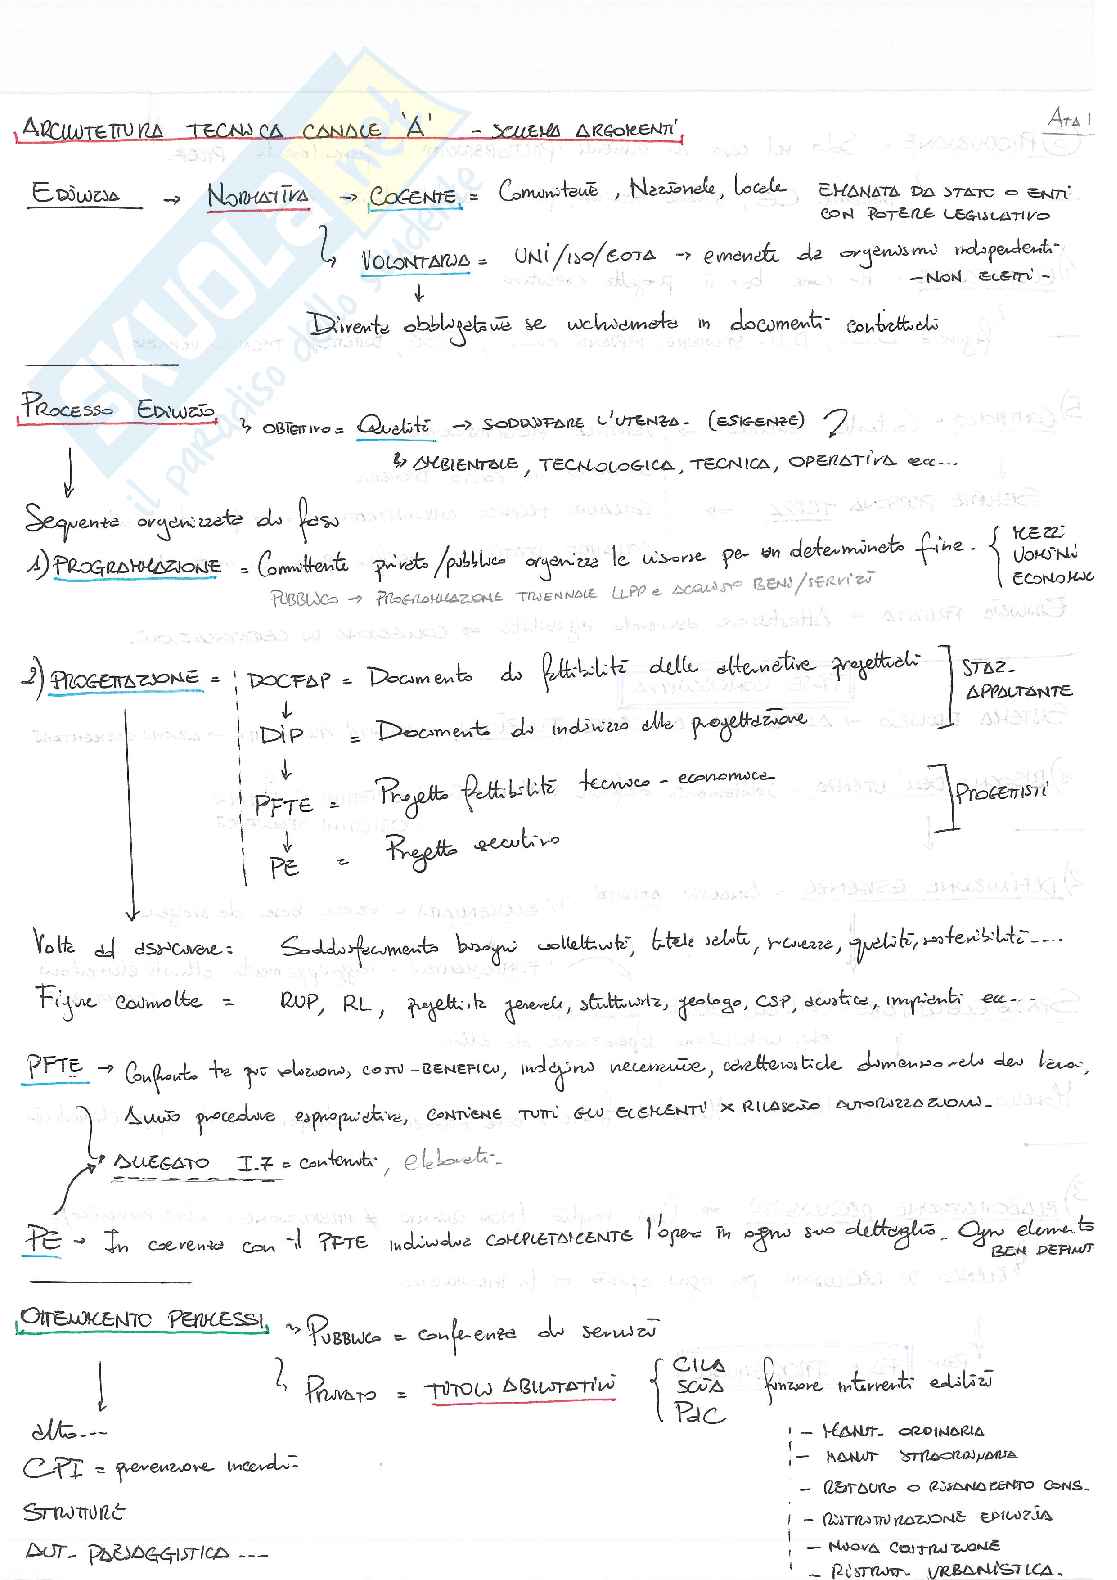 ARCHITETTURA TECNICA CANALE 'A' - SCHEMA ARGOMENTI
ATA 1
EDILIZIA → NORMATIVA → COGENTE = Comunitarie, Nazionale, locale EMANATA DA STATO O ENTI CON POTERE LEGISLATIVO
VOLONTARIA = UNI/ISO/EOTA → emanate da organismi indipendenti - NON ELETTI -
Diventa obbligatorie se richiamata in documenti contrattuali
PROCESSO EDILIZIO ↳ OBIETTIVO = Qualità → SODDISFARE L'UTENZA. (ESIGENZE)
↳ AMBIENTALE, TECNOLOGICA, TECNICA, OPERATIVA ecc...
Sequenza organizzata di fasi
1) PROGRAMMAZIONE = Committente privato/pubblico organizza le risorse per un determinato fine. { MEZZI UOMINI ECONOMIC
PUBBLICO → PROGRAMMAZIONE TRIENNALE LLPP e ACQUISTO BENI/SERVIZI
2) PROGETTAZIONE = DOCFAP = Documento di fattibilità delle alternative progettuali ] STAZ. APPALTANTE
DIP = Documento di indirizzo alla progettazione
PFTE = Progetto fattibilità tecnico-economica ] PROGETTISTI
PE = Progetto esecutivo
Volta ad assicurare: Soddisfacimento bisogni collettività, tutela salute, sicurezza, qualità, sostenibilità....
Figure coinvolte = RUP, RL, progettista generale, strutturista, geologo, CSP, acustica, impianti ecc...
PFTE → Confronto tra più soluzioni, COSTI-BENEFICI, indagini necessarie, caratteristiche dimensionali dei lavori,
Avvio procedure espropriative, CONTIENE TUTTI GLI ELEMENTI X RILASCIO AUTORIZZAZIONI.
ALLEGATO I.7 = contenuti, elaborati.
PE → In coerenza con il PFTE individua COMPLETAMENTE l'opera in ogni suo dettaglio. Ogni elemento BEN DEFINIT
OTTENIMENTO PERMESSI ↳ PUBBLICO = conferenza di servizi
↳ PRIVATO = TITOLI ABILITATIVI { CILA SCIA PdC funzione interventi edilizi
alto...
CPI = prevenzione incendi.
STRUTTURE
AUT. PAESAGGISTICA ...
- MANUT. ORDINARIA
- MANUT STRAORDINARIA
- RESTAURO O RISANAMENTO CONS.
- RISTRUTTURAZIONE EDILIZIA
- NUOVA COSTRUZIONE
- RISTRUT. URBANISTICA.
SKUOLA.net
il paradiso dello studente